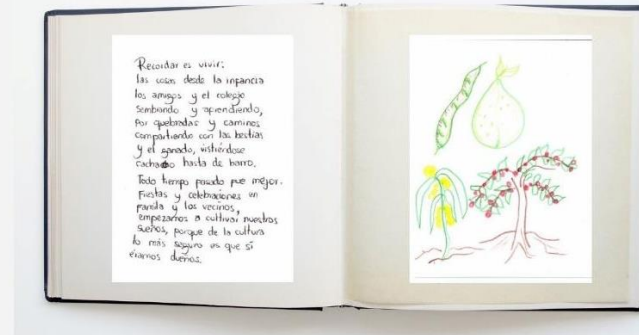 Recordar es vivir:
las cosas desde la infancia
los amigos y el colegio
Sembrando y aprendiendo,
Por quebradas y caminos
compartiendo con las bestias
y el ganado, vistiéndose
hasta de barro.
Todo tiempo pasado fue mejor.
Fiestas y celebraciones en
familia y los vecinos,
empezamos a cultivar nuestros
sueños, porque de la cultura
lo más seguro es que sí
éramos dueños.